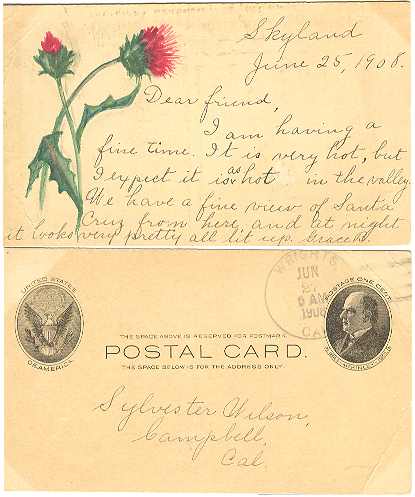 Skyland
June 25, 1908.
Dear friend,
I am having a
fine time. It is very hot, but
I expect it is as hot in the valley.
We have a fine view of Santa
Cruz from here, and at night
it looks very pretty all lit up. Grace B.
WRIGHTS,
JUN
27
6 AM
1908
CAL
UNITED STATES
OF AMERICA
POSTAGE ONE CENT
THE SPACE ABOVE IS RESERVED FOR POSTMARK.
POSTAL CARD.
THE SPACE BELOW IS FOR THE ADDRESS ONLY.
Sylvester Wilson,
Campbell,
Cal.